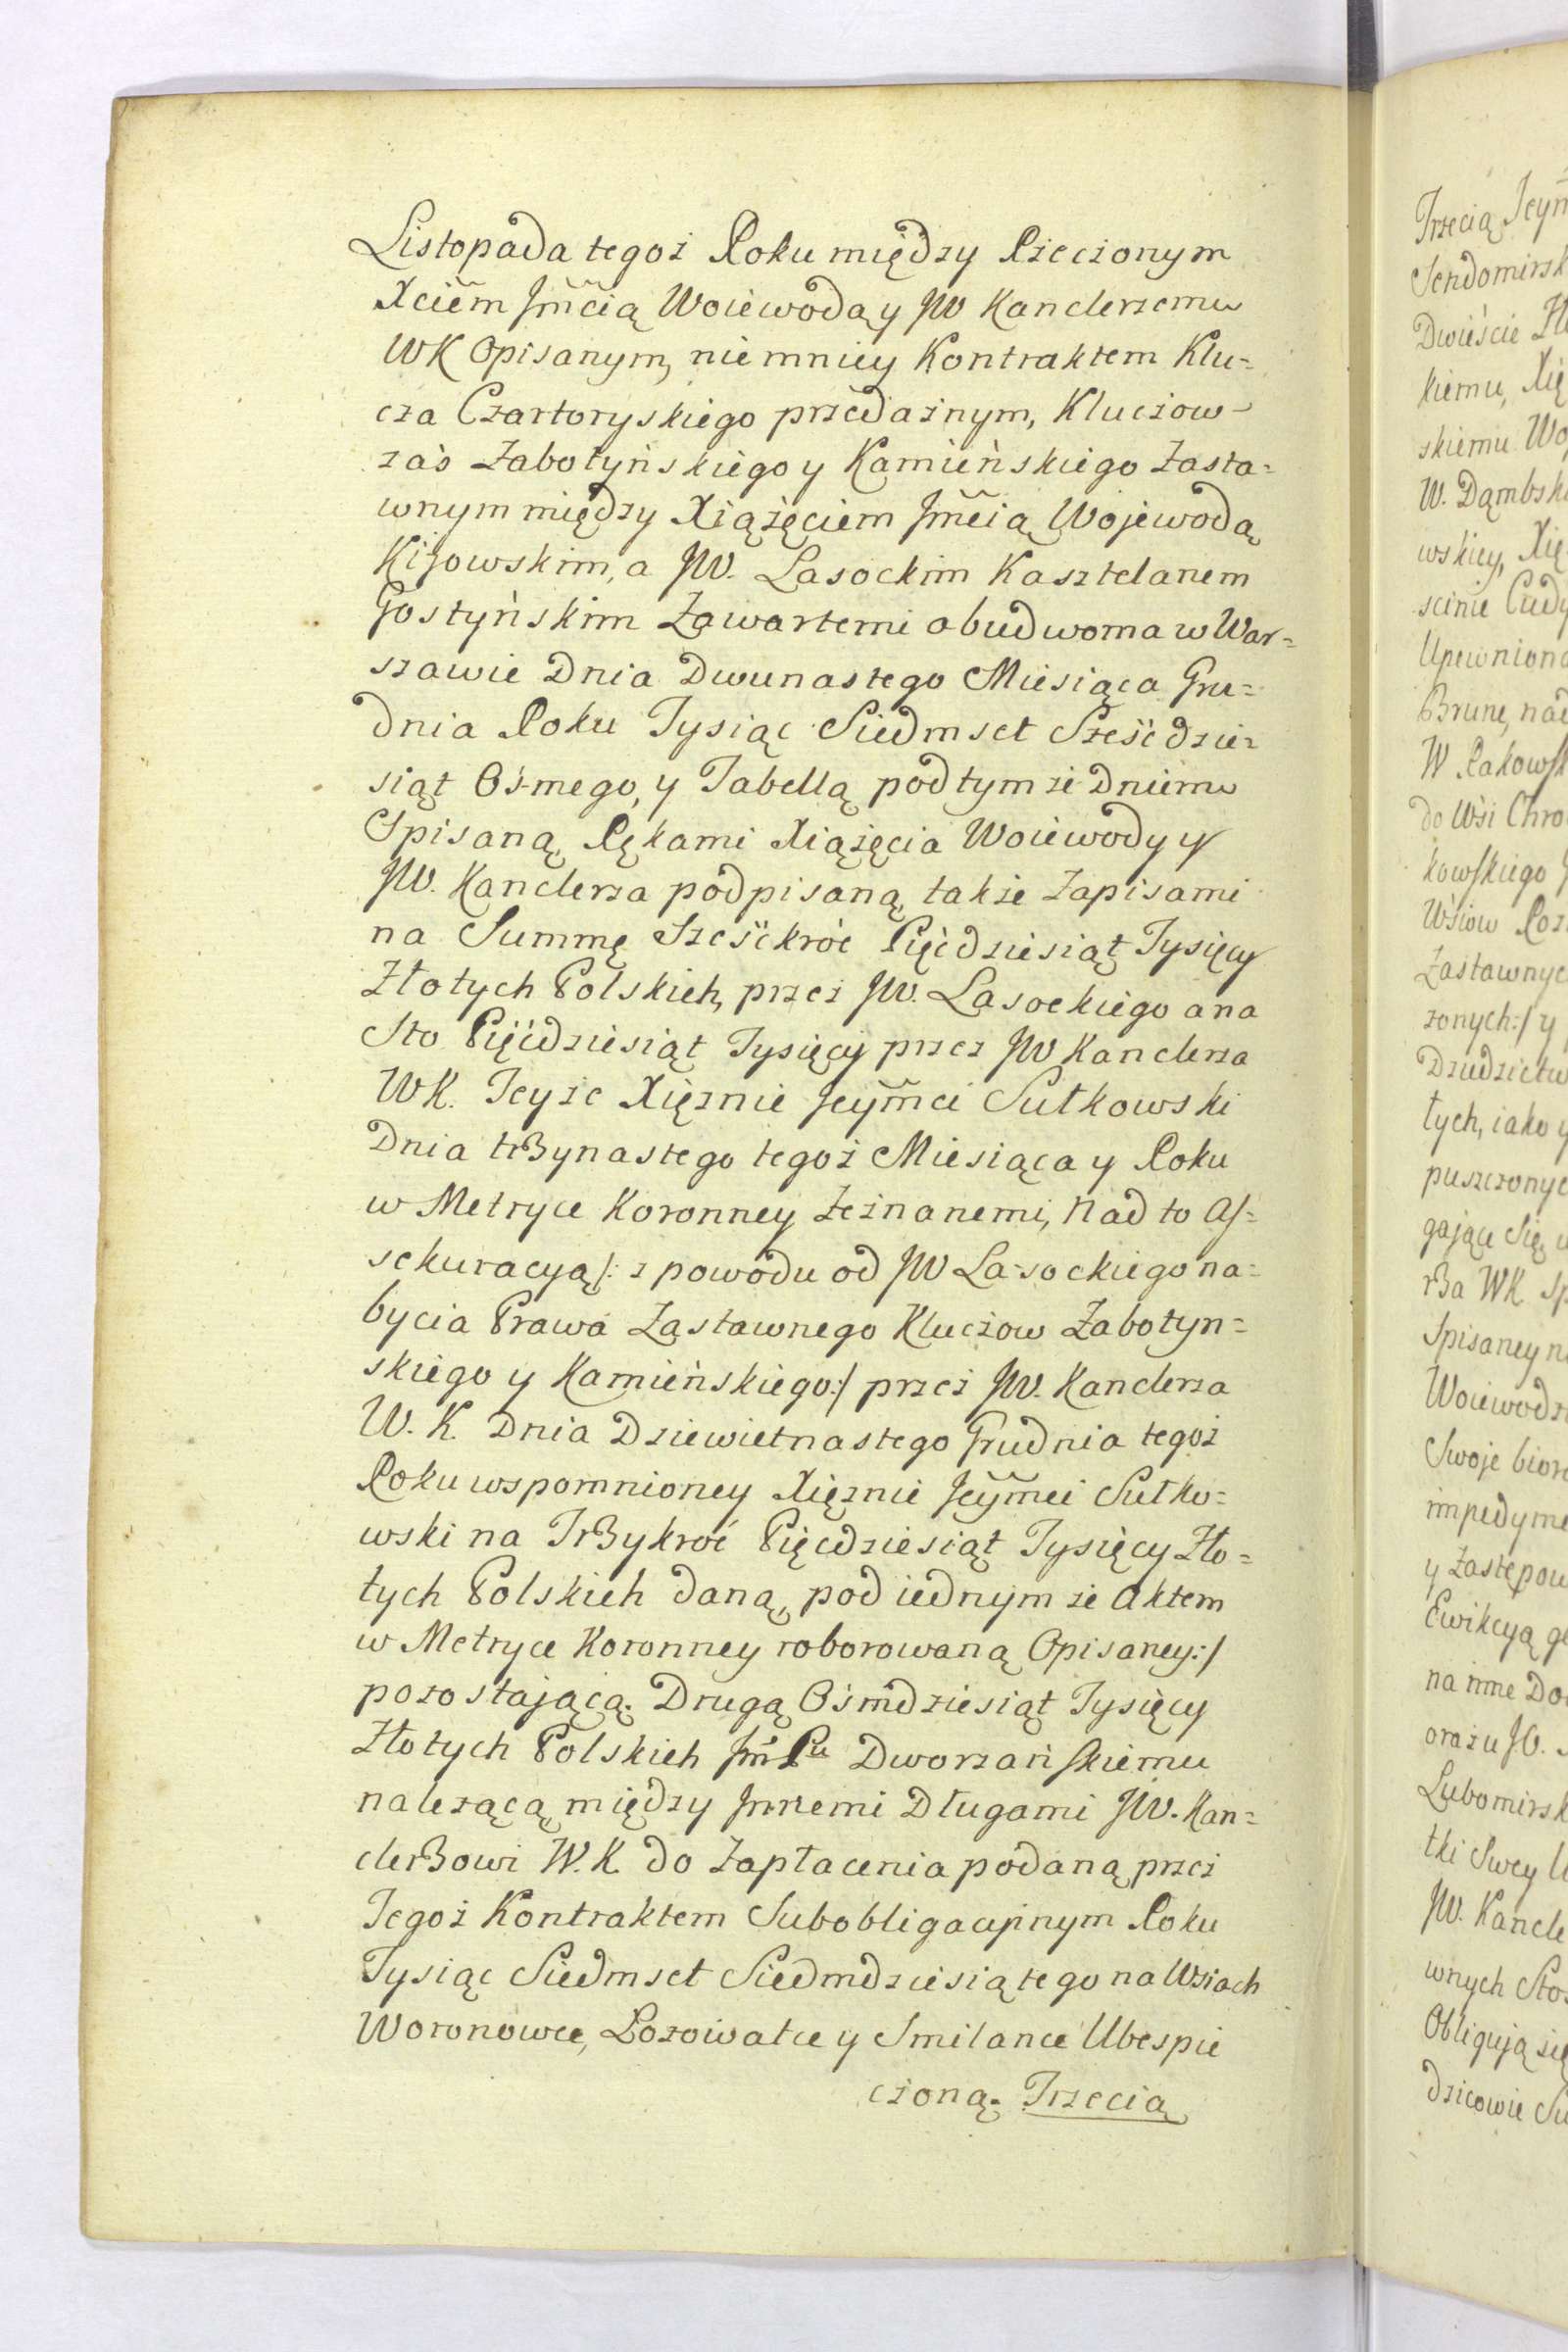 Listopada tegoż Roku między Rzeczonym
Xciem̃ Jm̃cią Woiewodą y JW Kanclerzemu
WK Opisanym, niemniey Kontraktem Klu=
cza Czartoryskiego przedażnym, Kluczow
zaś Żabotyńskiego y Kamieńskiego Zasta=
wnym między Xiążęciem Jm̃cią Wojewodą
Kijowskim, a JW. Lasockim Kasztelanem
Gostyńskim Zawartemi obudwoma w War=
szawie Dnia Dwunastego Miesiąca Gru=
dnia Roku Tysiąc Siedmset Sześćdzie=
siąt Osmego, y Tabellą pod tym że Dniemu
Spisaną, Rękami Xiążęcia Woiewody y
JW. Kanclerza podpisaną, także Zapisami
na Summę Sześćkroć Pięćdziesiąt Tysięcy
Złotych Polskich, przez JW. Lasockiego a na
Sto Pięćdziesiąt Tysięcy przez JW Kanclerza
WK. Teyże Xiężnie Jeym̃ci Sułkowski
Dnia trzynastego tegoż Miesiąca y Roku
w Metryce Koronney Zeznanemi, Nad to As=
sekuracyą /: z powodu od JW Lasockiego na=
bycia Prawa Zastawnego Kluczow Żabotyn=
skiego y Kamieńskiego :/ przez JW. Kanclerza
W. K. Dnia Dziewietnastego Grudnia tegoż
Roku wspomnioney Xiężnie Jeym̃ci Sułko=
wski na Trzykroć Pięćdziesiąt Tysięcy Zło=
tych Polskich daną, pod iednym że Aktem
w Metryce Koronney roborowaną Opisaney :/
pozostającą. Drugą Osmdziesiąt Tysięcy
Złotych Polskich Jm̃ Pu Dworzańskiemu
należącą między Jnnemi Długami JW. Kan=
clerzowi W. K. do Zapłacenia podaną, przez
Tegoż Kontraktem Subobligacyjnym Roku
Tysiąc Siedmset Siedmdziesiątego na Wsiach
Woronowce, Łozowatce y Smilance Ubespie
czoną. Trzecią
Trzecią Jeym̃
Sendomirsk
Dwieście Zł
kiemu, Xię
skiemu Wo
W. Dąmbsk
wskiey, Xię
Upewniono
Brunę, nad
W Rakowsk
do Wsi Chro
kowskiego
Wsiow Roz
Zastawnyc
zonych :/ y
Dziedzictw
tych, iako y
puszczonyc
gające się w
rza WK. Sp
Spisaney n
Woiewodz
Swoje bior
impedyme
y Zastępow
Ewikcyą gł
na inne Do
oraz u JO.
Lubomirsk
tki Swey U
JW. Kancle
wnych Sto
Obligują się
dzicowie Su